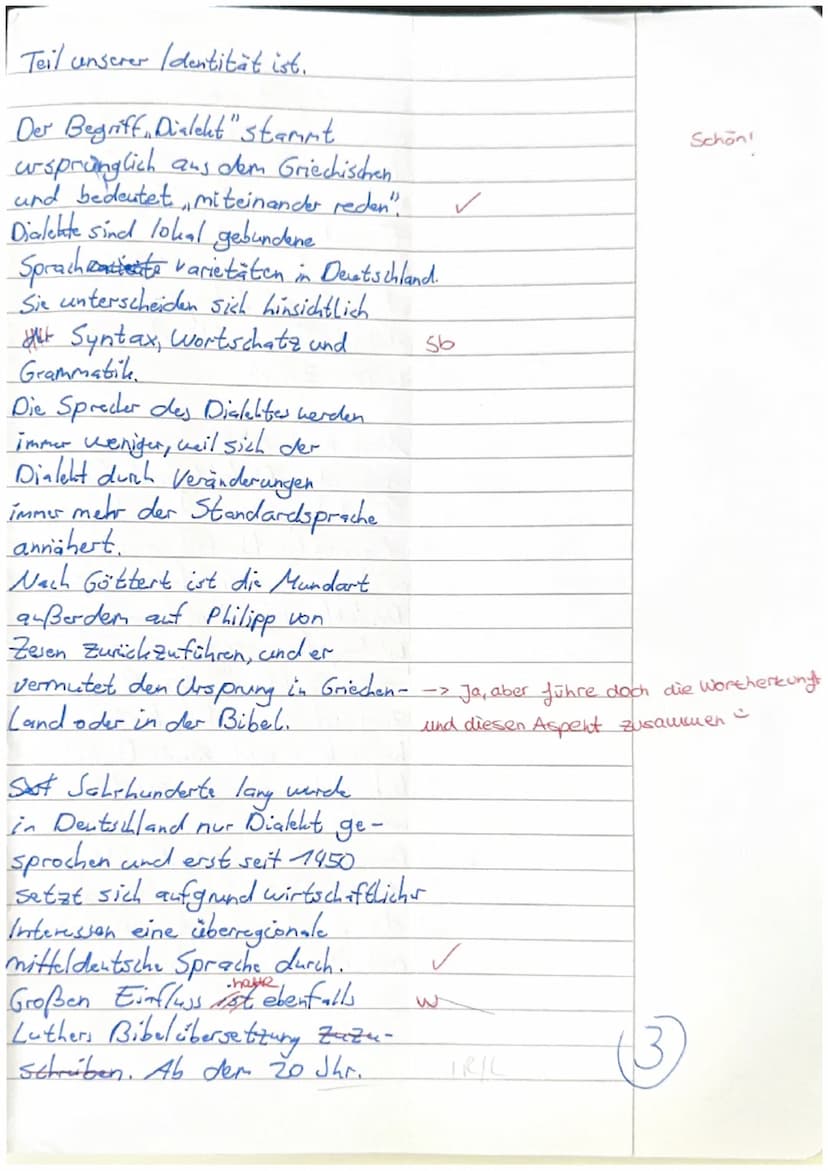 Teil unserer Identität ist.
Der Begriff „Dialekt" stammt
Schön!
ursprünglich aus dem Griechischen
und bedeutet „miteinander reden". ✓
Dialekte sind lokal gebundene
Sprach varietäten in Deutschland.
Sie unterscheiden sich hinsichtlich
Syntax, Wortschatz und Sb
Grammatik.
Die Sprecher des Dialektes werden
immer weniger, weil sich der
Dialekt durch Veränderungen
immer mehr der Standardsprache
annähert.
Nach Göttert ist die Mundart
außerdem auf Philipp von
Zesen zurückzuführen, und er
vermutet den Ursprung in Griechen- -> Ja, aber führe doch die Wortherkunft
Land oder in der Bibel. und diesen Aspekt zusammen
Jahrhunderte lang wurde
in Deutschland nur Dialekt ge-
sprochen und erst seit 1450
setzt sich aufgrund wirtschaftlicher
Interessen eine überregionale
mitteldeutsche Sprache durch. ✓
hatte
Großen Einfluss ist ebenfalls w
Luthers Bibelübersetzung zuzu-
schreiben. Ab dem 20 Jhr. 1R/L
3